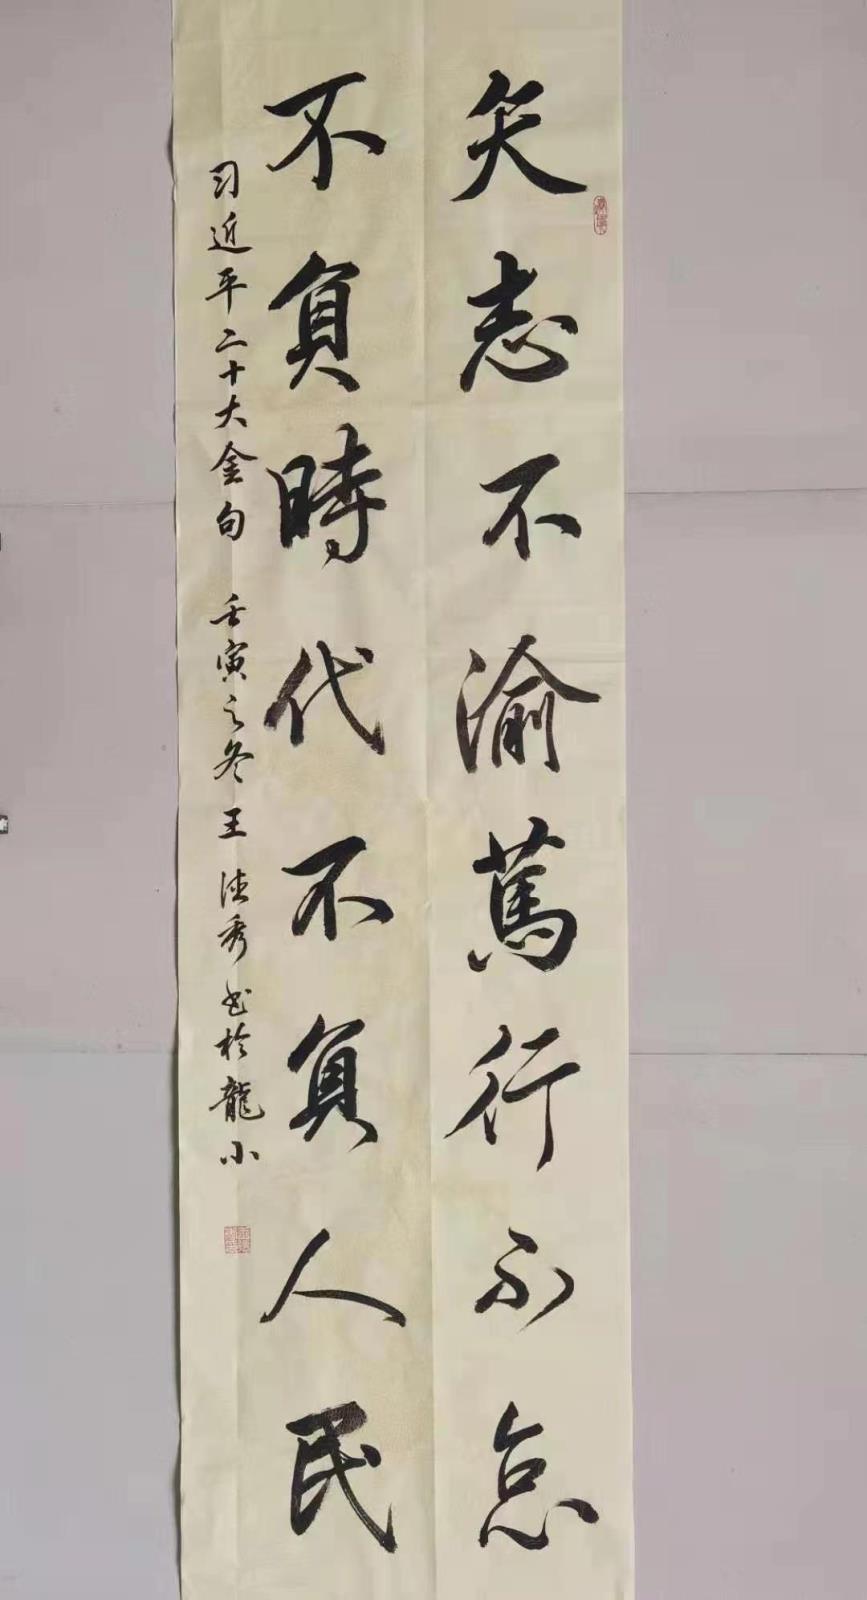 矢志不渝篤行不怠
不負時代不負人民
习近平二十大金句 壬寅之冬王德秀书於龍小